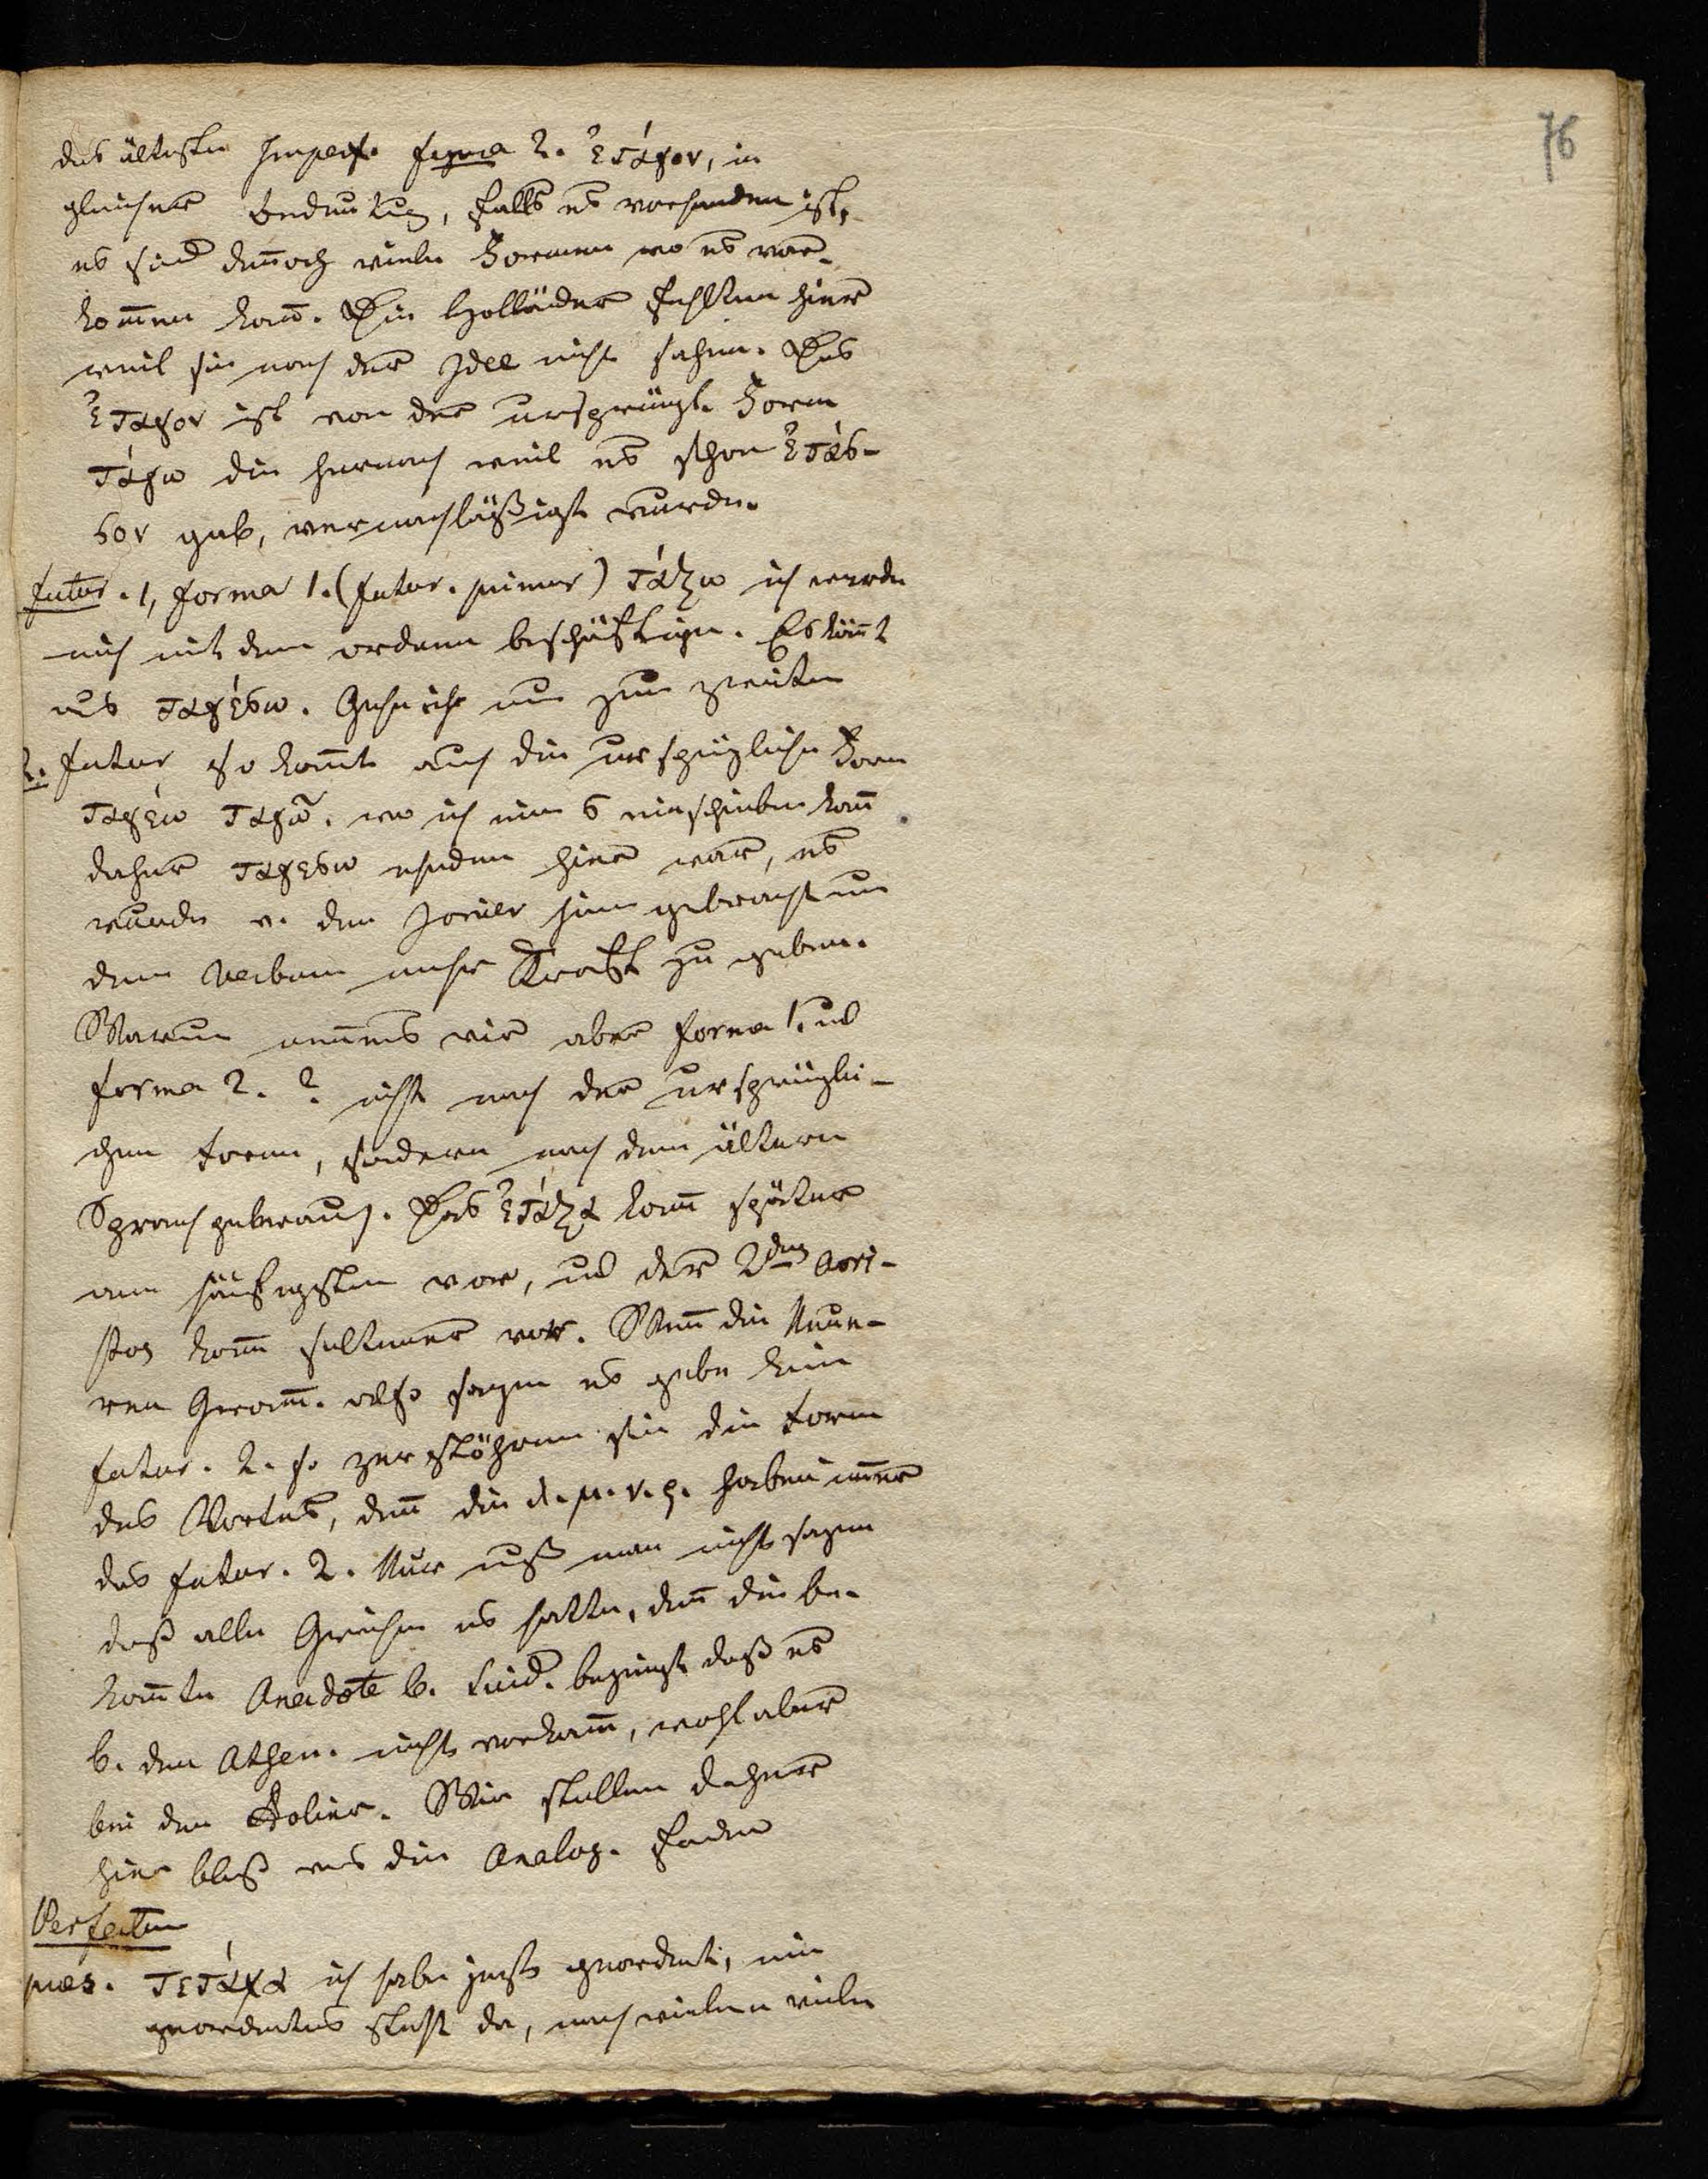 76
das älteste Imperf. forma 2. ἔταγον, in
gleicher Bedeutung, falls es vorhanden ist,
es sind deñoch viele Formen wo es vor-
kom̄en kan̄. Die Holländer fehlten hier
weil sie nach der Idee nicht sahen. Das
ἔταγον ist von der ursprüngl. Form
τάγω die hernach weil es schon ἔτας-
σον gab, vernachläßigt wurde.
futur. 1, forma 1. (futur. primar) τάξω ich werde
mich mit dem ordnen beschäftigen. Es köm̄t
aus ταγέσω. Gehe ich nun zum zweiten
2. futur so kom̄t auch die ursprüngliche Form
ταγέω ταγῶ. wo ich ein σ einschieben kan̄
daher ταγεσω
wurde v. den Ionier hinein gebracht um
dem Verbum mehr Kraft zu geben.
Warum nennens wir aber forma 1. und
forma 2. ? nicht nach der ursprüngli-
chen Form, sondern nach dem ältern
Sprachgebrauch. Das ἔταξα kom̄t später
am häufigsten vor, und der 2. Aori-
stos kom̄t seltener vor. Wen̄ die Neue-
ren Gram̄. also sagen es gebe kein
futur. 2. so zerstöhren sie die Form
des Wortes, den̄ die λ. μ. ν. ρ. haben im̄er
das futur. 2. Nur muß man nicht sagen
daß alle Griechen es hatten, den̄ die be-
kan̄te Anecdote b. Suid. bezeugt daß es
b. den Athen. nicht vorkam̄, wohl aber
bei den Äolier. Wir stellen daher
hier bloß uns die Analog. Faden
Perfectum
præs. τέταχα ich habe jezt geordnet, ein
geordnetes steht da, nach vielen viele